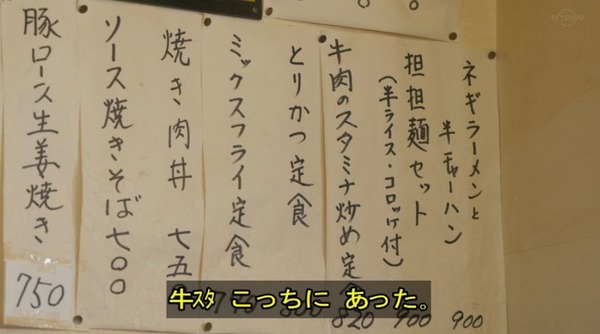 ネギラーメンと
半チャーハン
900
担担麺セット
(半ライス・コロッケ付)
900
牛肉のスタミナ炒め定食
820
とりかつ定食
ミックスフライ定食
焼き肉丼 七五
ソース焼きそば七〇〇
豚ロース生姜焼き
750
牛ｽﾀ こっちに あった。
TV TOKYO